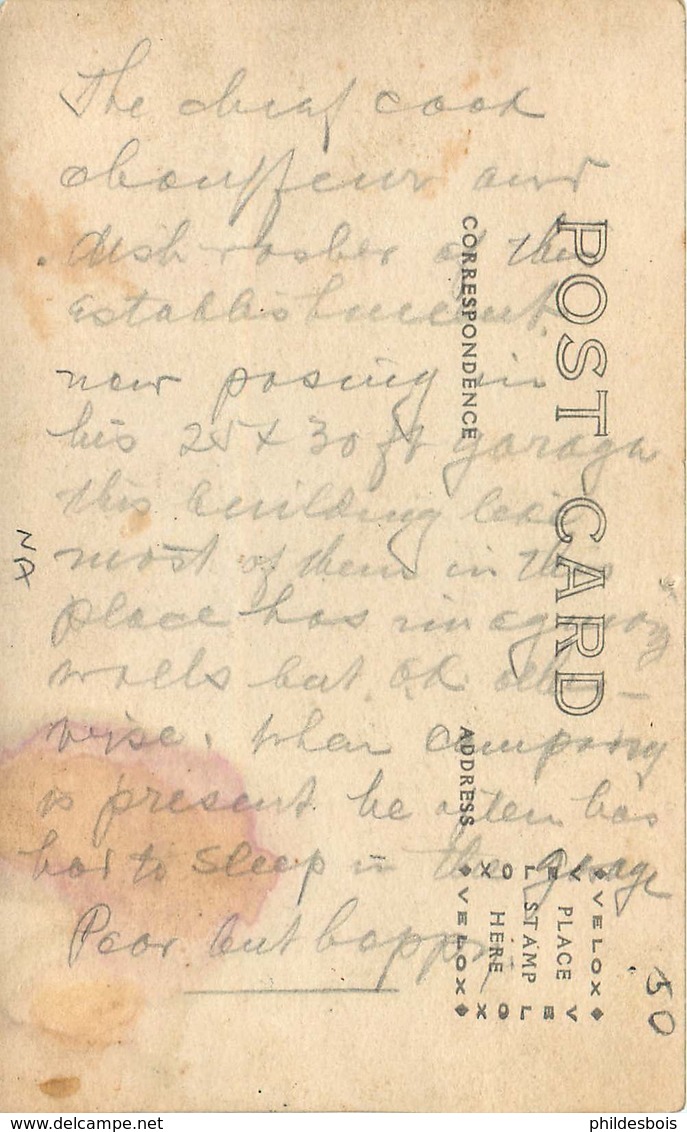 The chief cook
chauffeur and
dish-washer of this
establishment
now posing in
his 25 x 30 ft garage
this building like
most of them in this
place has imaginary
walls but OK other-
wise. When company
is present he often has
had to sleep in the garage
Poor but happy
POST CARD
CORRESPONDENCE
ADDRESS
VELOX
VELOX
VELOX
VELOX
PLACE
STAMP
HERE
NA
50
www.delcampe.net
phildesbois